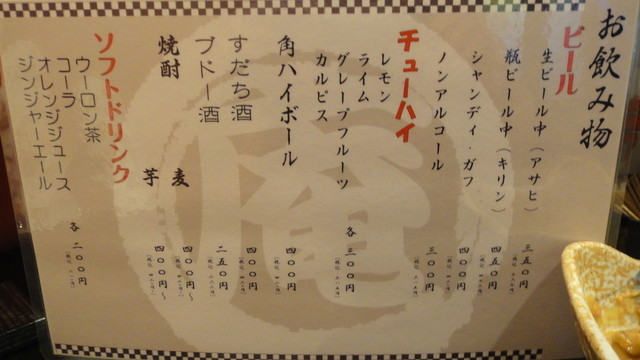 お飲み物
ビール
生ビール中（アサヒ） 三五〇円
瓶ビール中（キリン） 四五〇円
シャンディ・ガフ 四〇〇円
ノンアルコール 三〇〇円
チューハイ
レモン
ライム
グレープフルーツ
カルピス
各三〇〇円
角ハイボール 四〇〇円
すだち酒 四〇〇円
ブドー酒 二五〇円
焼酎
麦 四〇〇円～
芋 四〇〇円～
ソフトドリンク
ウーロン茶
コーラ
オレンジジュース
ジンジャーエール
各二〇〇円
庵